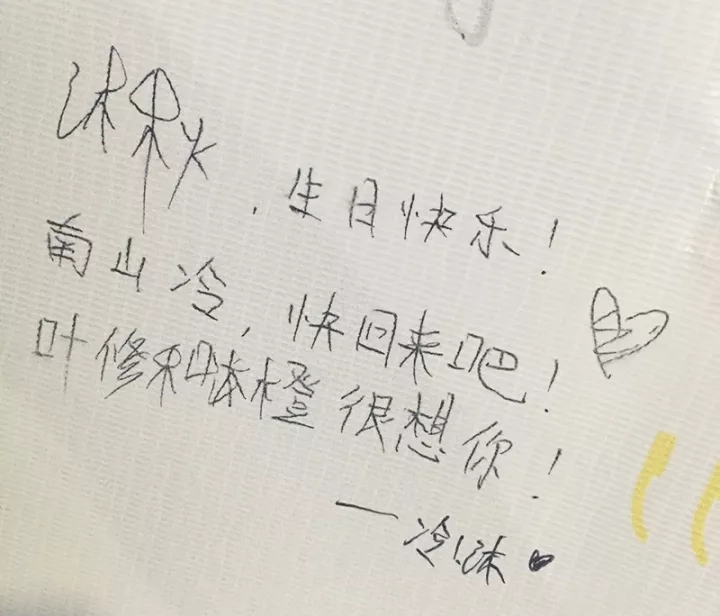 沐秋，生日快乐！
南山冷，快回来吧！
叶修和沐橙很想你！
—冷沐